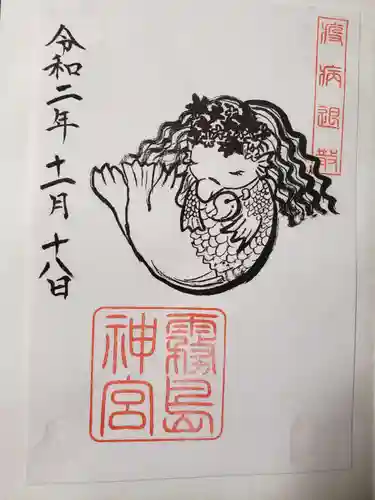 疫病退散
令和二年十一月十八日
霧島
神宮